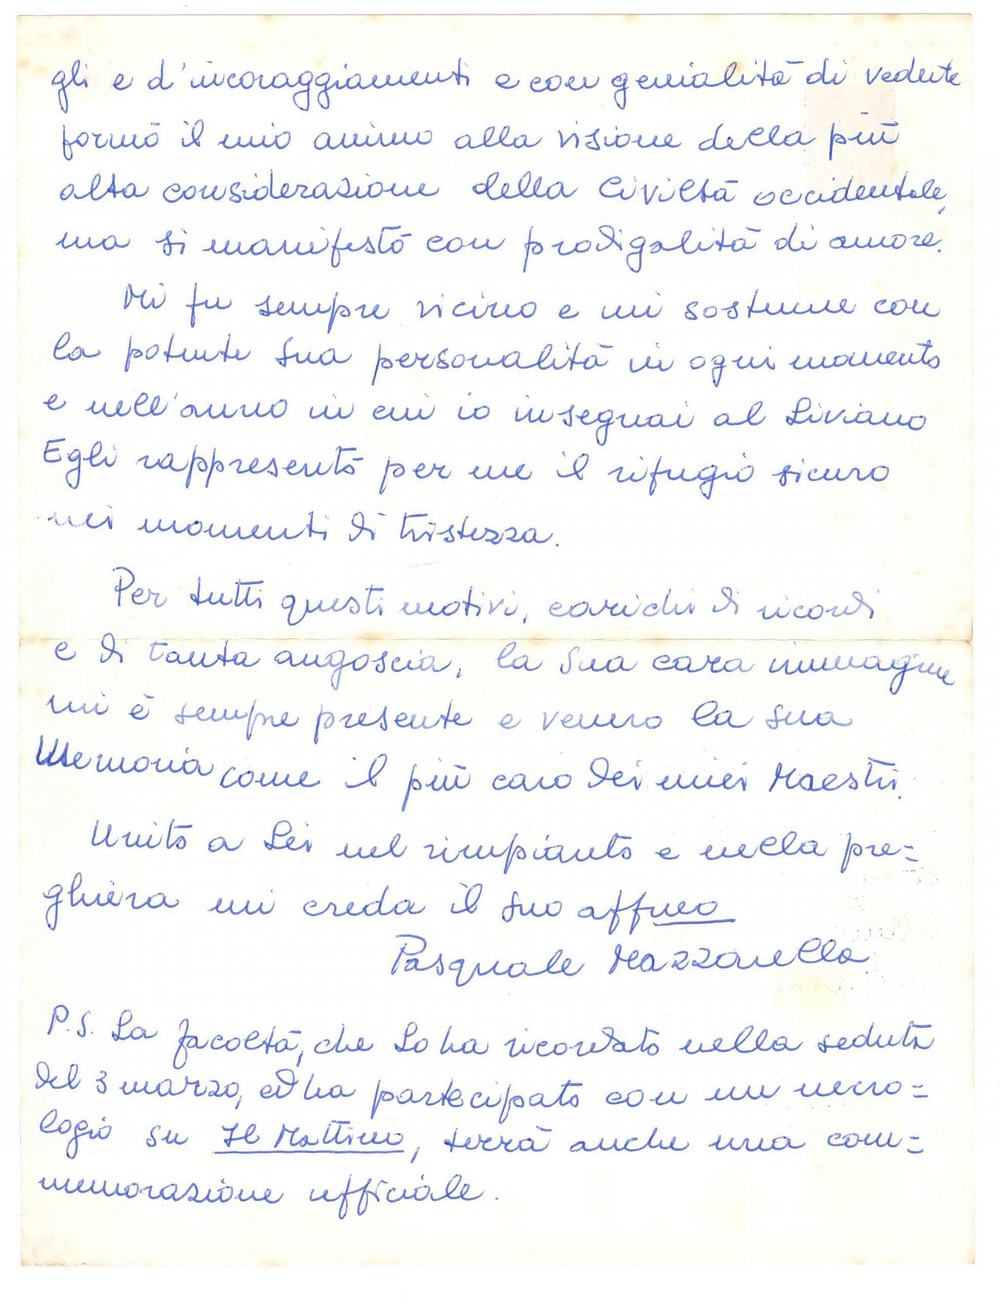 gli e d'incoraggiamenti e con genialità di vedute
formò il mio animo alla visione della più
alta considerazione della Civiltà occidentale,
ma si manifestò con prodigalità di amore.
Mi fu sempre vicino e mi sostenne con
la potente Sua personalità in ogni momento
e nell'anno in cui io insegnai al Liviano
Egli rappresentò per me il rifugio sicuro
nei momenti di tristezza.
Per tutti questi motivi, carichi di ricordi
e di tanta angoscia, la Sua cara immagine
mi è sempre presente e venero la Sua
Memoria come il più caro dei miei Maestri.
Unito a Lei nel rimpianto e nella pre=
ghiera mi creda il Suo affmo
Pasquale Mazzarella
P.S. La facoltà, che Lo ha ricordato nella seduta
del 3 marzo, ed ha partecipato con un necro=
logio su Il Mattino, terrà anche una com=
memorazione ufficiale.